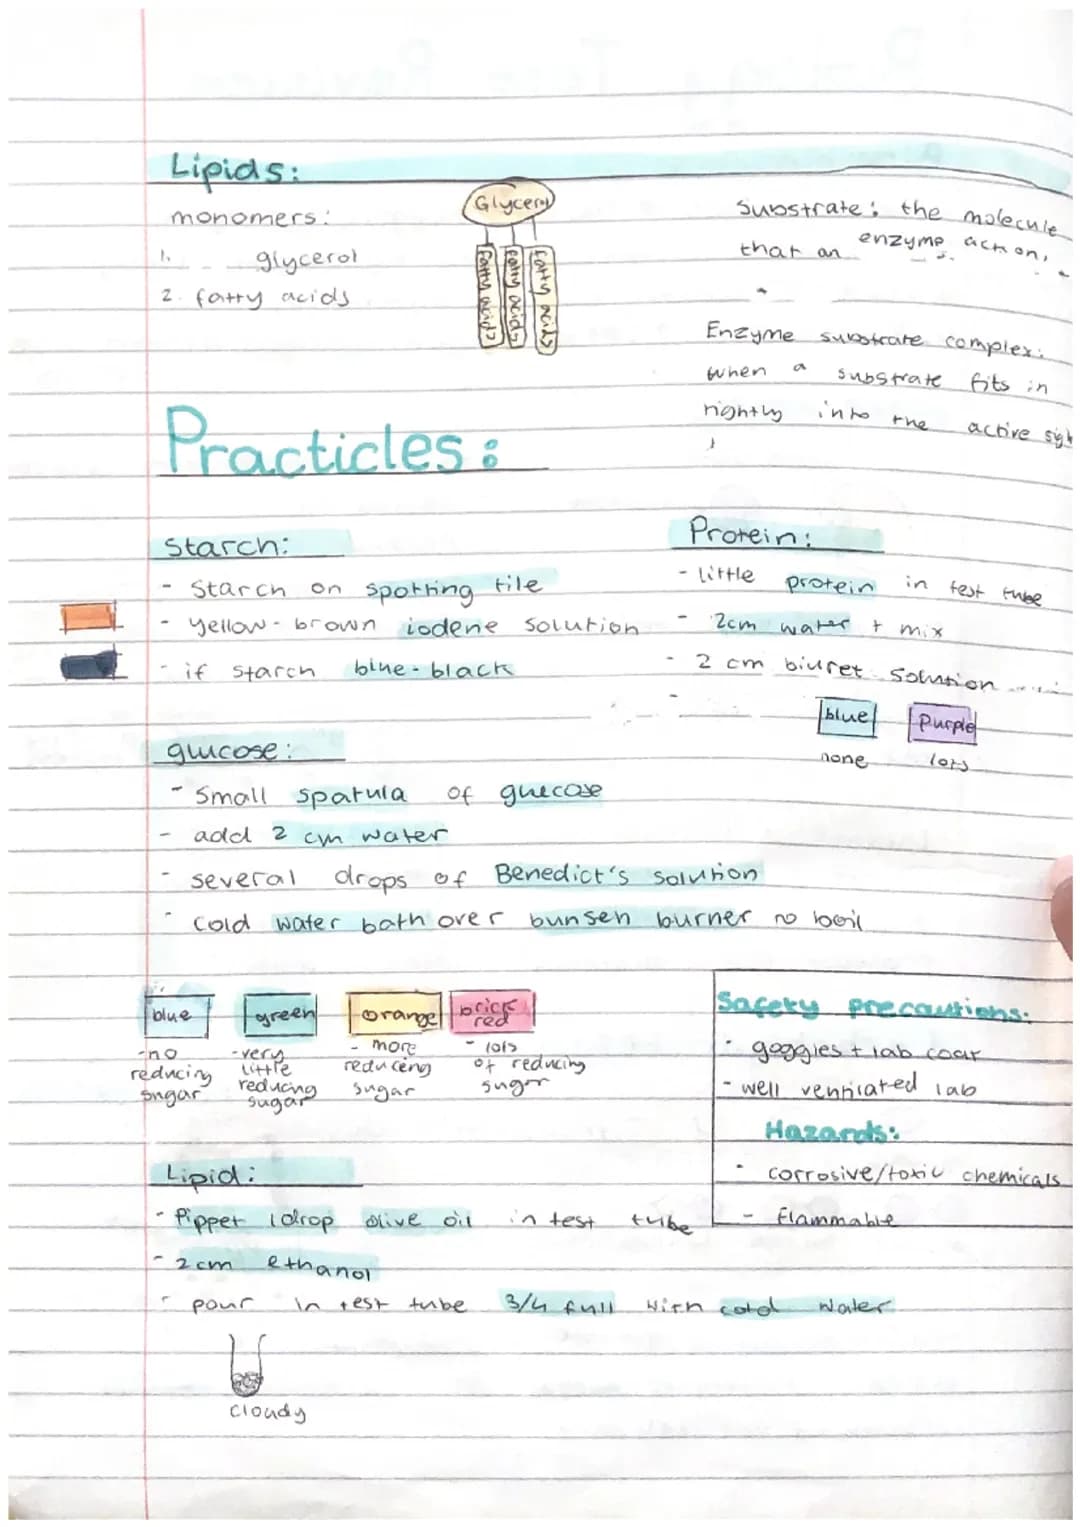 Lipids:
monomers:
1. glycerol
2. fatty acids
Glycerol
fatty acids
fatty acids
fatty acids
Substrate: the molecule
that an enzyme action,
Enzyme substrate complex:
when a substrate fits in
rightly into the active sigh
Practicles:
Starch:
- Starch on spotting tile
- yellow-brown iodene solution
- if starch blue-black
Protein:
- little protein in test tube
- 2cm water + mix
- 2 cm biuret solution
blue
purple
none
lots
glucose:
- Small spatula of gluecose
- add 2 cm water
- several drops of Benedict's solution
- Cold water bath over bunsen burner no boil
blue
- no
reducing
sugar
green
- very
little
reducing
sugar
orange
- more
reduceng
sugar
brick
red
- lots
of reducing
sugar
Safety precautions:
- goggles + lab coat
- well ventilated lab
Hazards:
- corrosive/toxic chemicals
- flammable
Lipid:
- Pippet 1 drop olive oil in test tube
- 2cm ethanol
- pour in test tube 3/4 full with cold water
cloudy